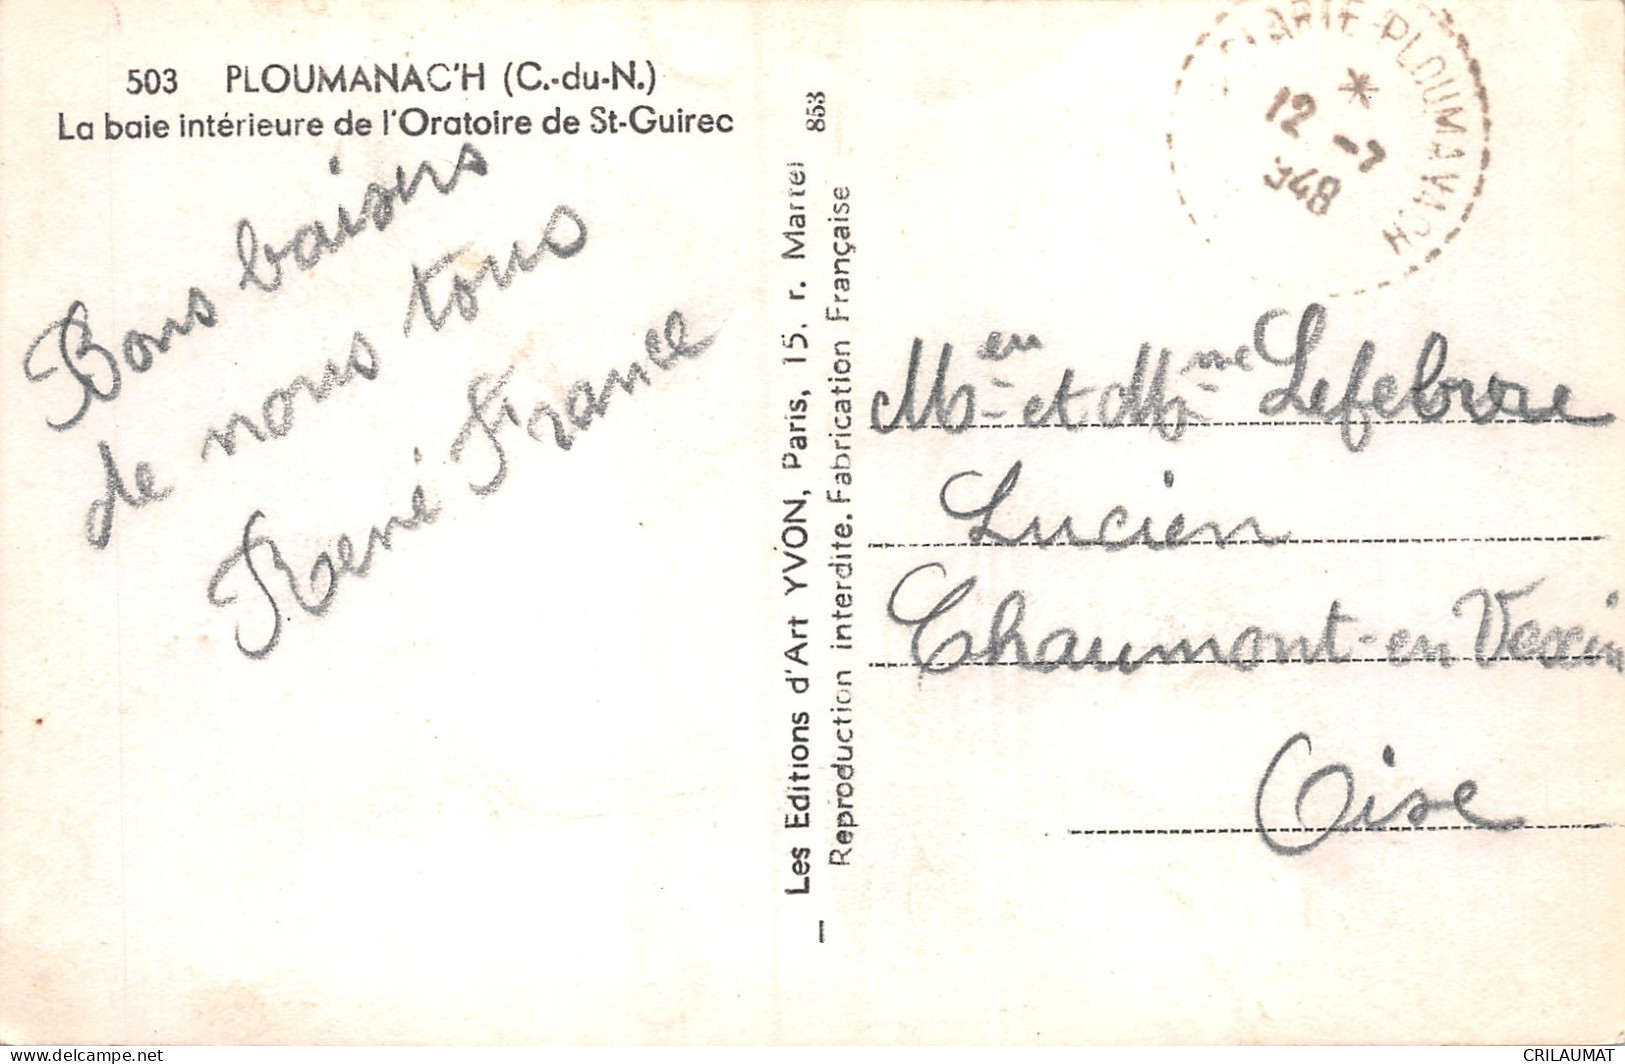 503 PLOUMANAC'H (C.-du-N.)
La baie intérieure de l'Oratoire de St-Guirec
Bons baisers
de nous tous
René France
Les Editions d'Art YVON, Paris, 15, r. Martel 853
Reproduction interdite. Fabrication Française
PLOUMANACH
12 -7
948
Mr et Mme Lefebvre
Lucien
Chaumont-en Vexin
Oise
delcampe.net
CRILAUMAT